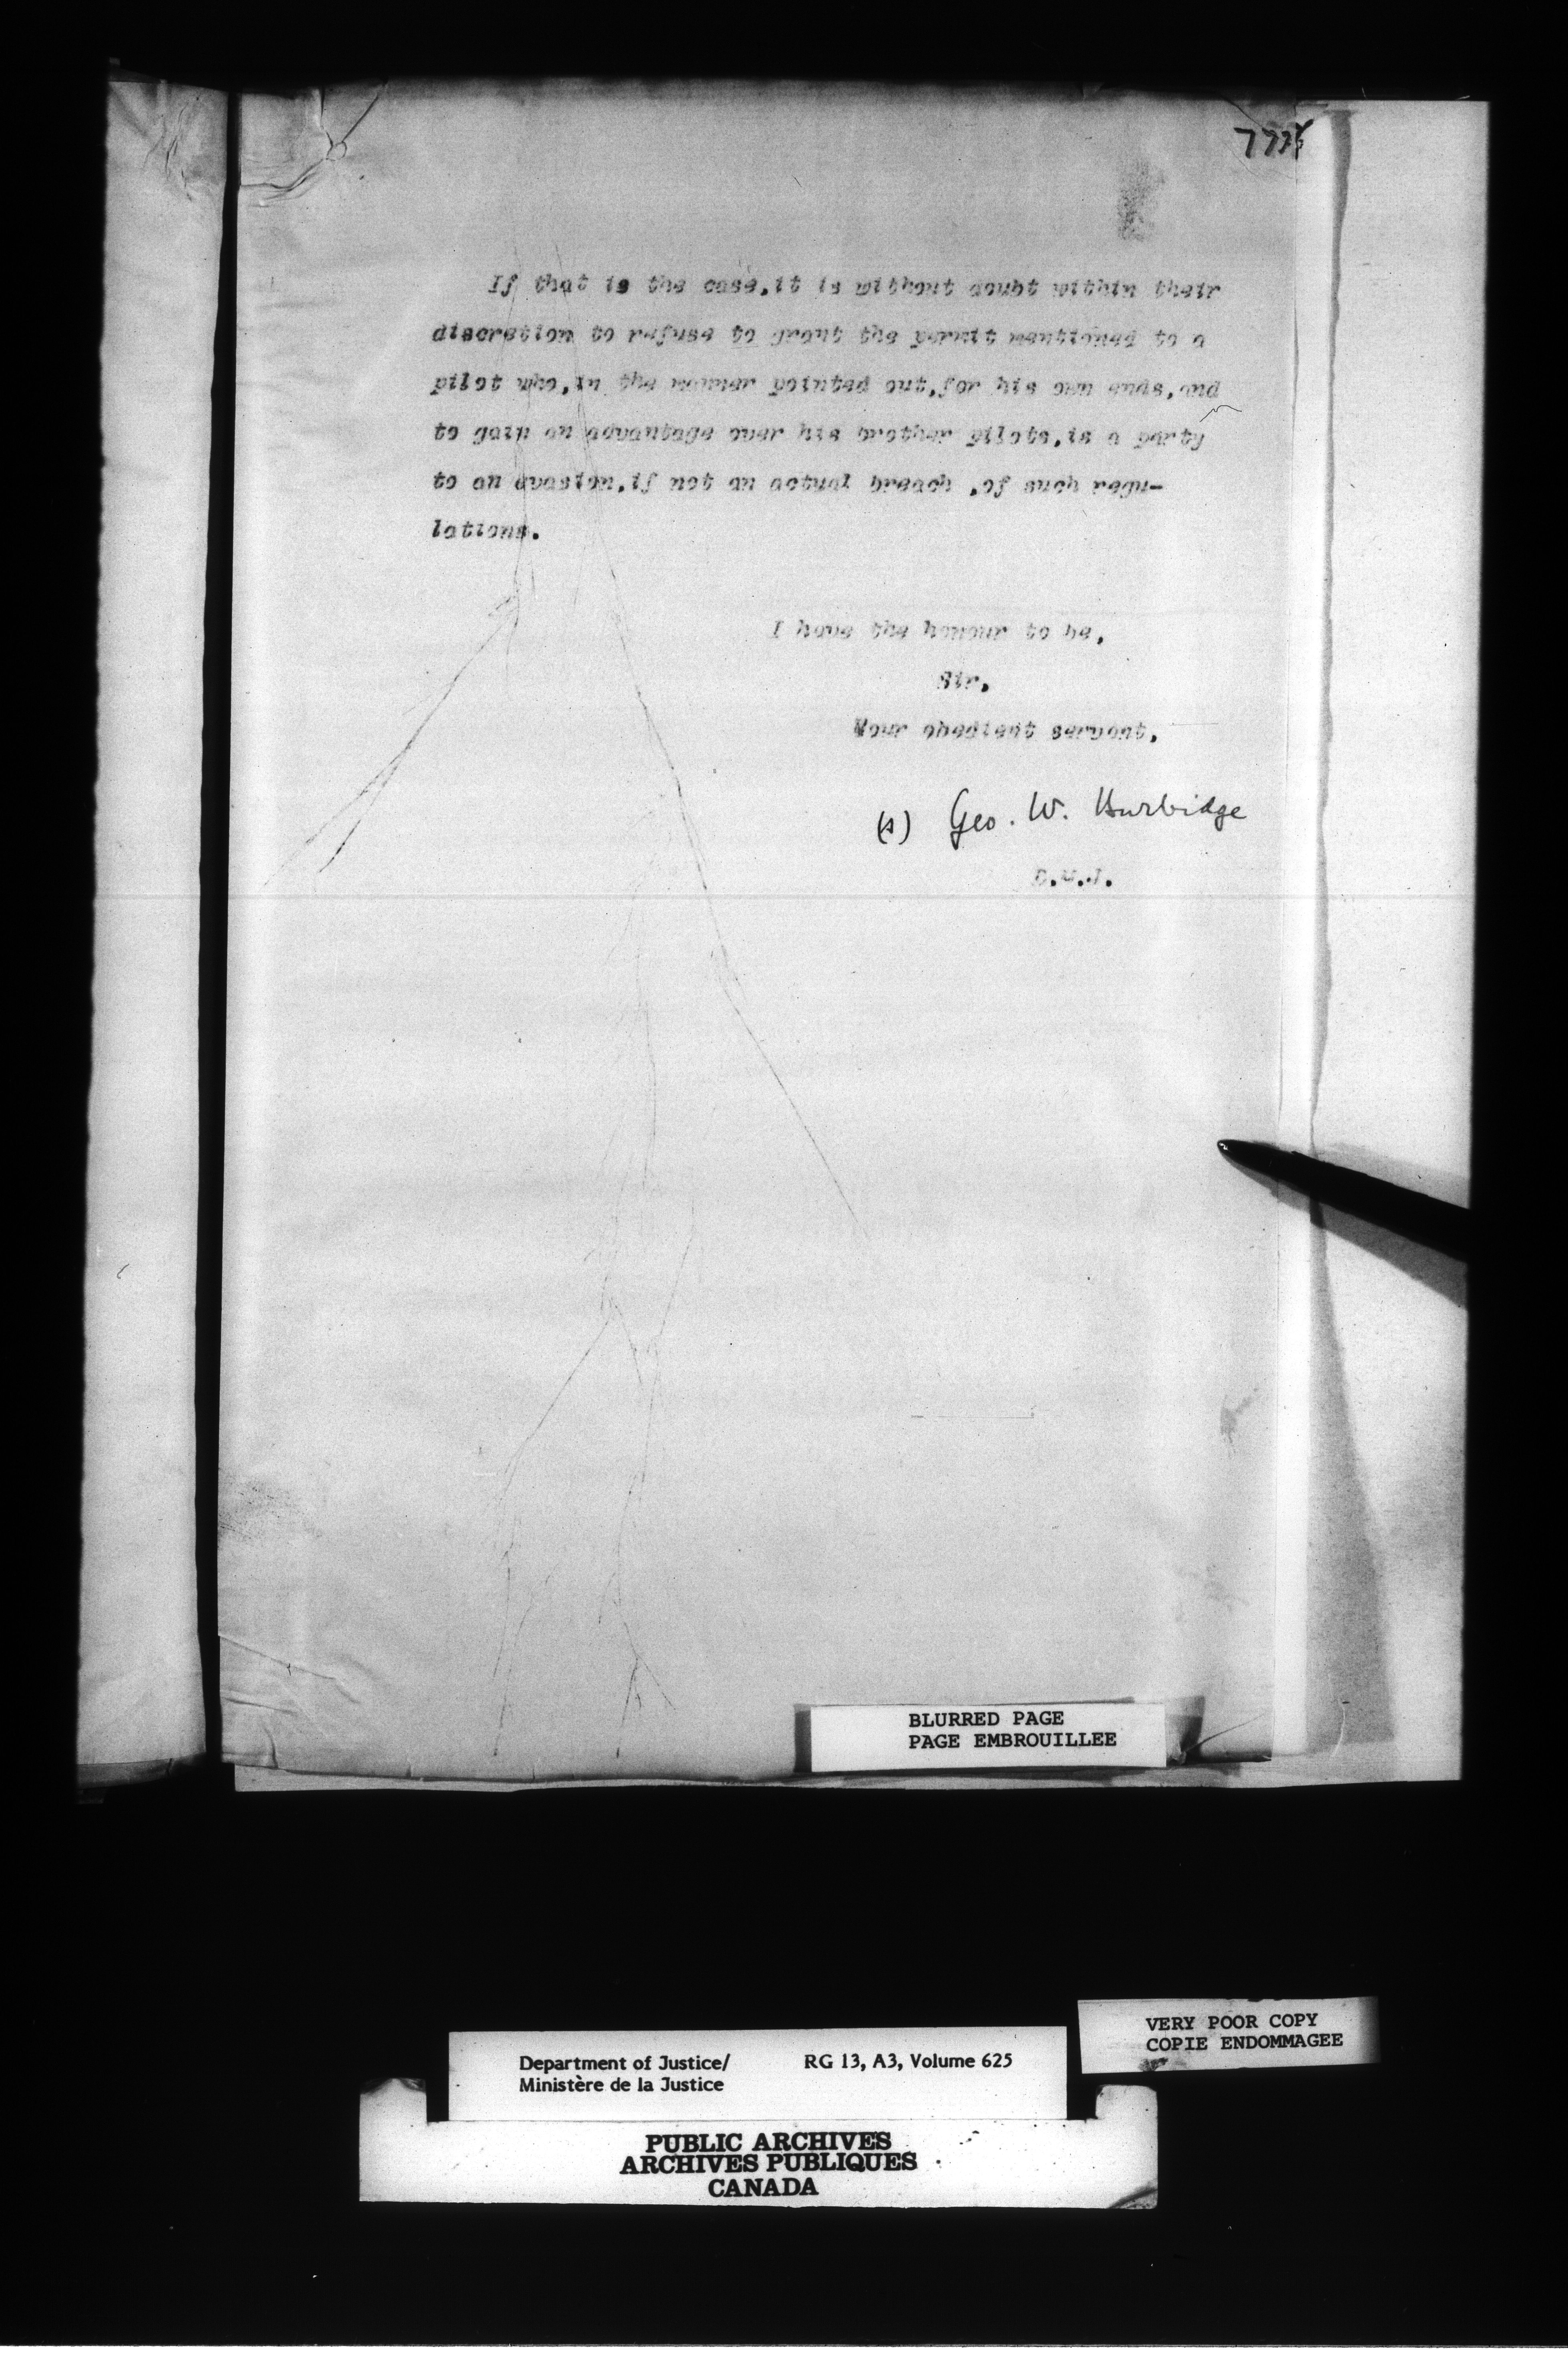 If that is the case,it is without doubt within their
discretion to refuse to grant the permit mentioned to a
pilot who,in the manner pointed out,for his own ends,and
to gain an advantage over his brother pilots,is a party
to an evasion,if not an actual breach ,of such regu-
lations.
I have the honour to be,
Sir,
Your obedient servant,
(s) Geo. W. Burbidge
D.M.J.
BLURRED PAGE
PAGE EMBROUILLEE
VERY POOR COPY
COPIE ENDOMMAGEE
Department of Justice/ RG 13, A3, Volume 625
Ministère de la Justice
PUBLIC ARCHIVES
ARCHIVES PUBLIQUES
CANADA